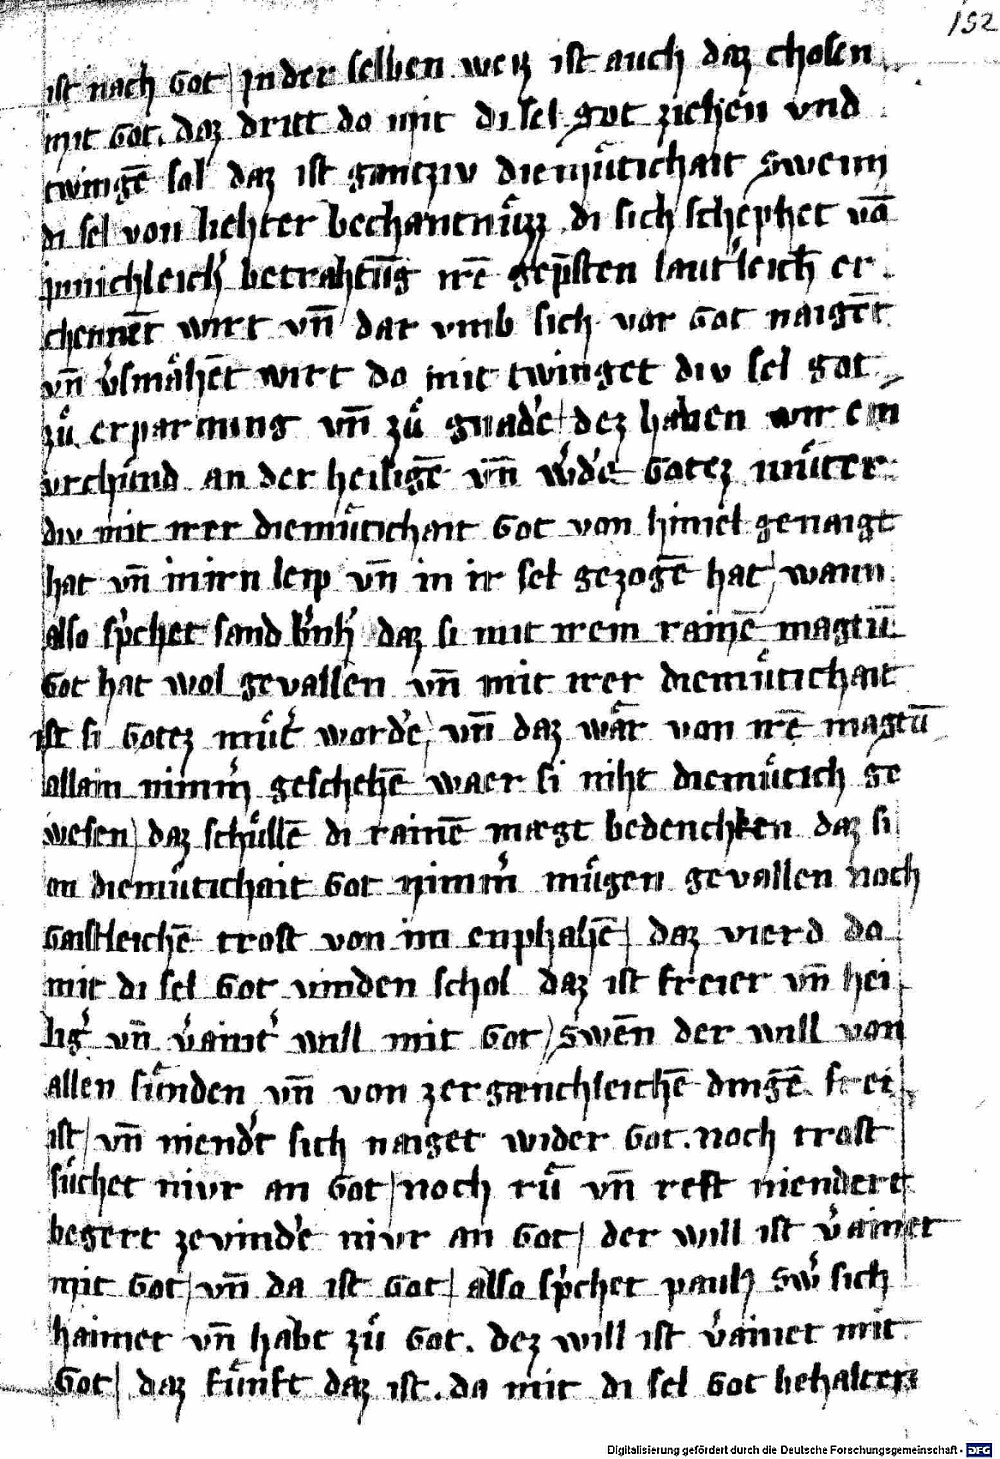 152
ist nach got / jn der selben weiz ist auch daz chosen
mit got. daz dritt do mit di sel got ziehen vnd
twingē sol daz ist gantziv diemuͤtichait Swenn
di sel von liehter bechantnuͤzz di sich schephet vō
jnnichleich' betrahtūg irē gepsten laut'leich er
chennēt wirt vn̄ dar vmb sich vor got naigēt
vn̄ v'smaͤhēt wirt do mit twinget div sel got
zuͦ erparmung vn̄ zuͦ gnad'e / dez haben wir ein
vrchund an der heiligē vn̄ w'd'e gotez muͦter
div mit irer diemuͤtichait got von himel genaigt
hat vn̄ in irn leip vn̄ in ir sel gezogē hat / wann
also sp'chet sand b'nh' daz si mit irem rainē magtū
got hat wol gevallen vn̄ mit irer diemuͤtichait
ist si gotez muͦt' word'e / vn̄ daz waͤr von irē magtū
allain nimm' geschehē waer si niht diemuͤtich ge
wesen / daz schuͤllē di rainē mægt bedenchen daz si
an diemuͤtichait got nimm' muͤgen gevallen noch
gaistleichē trost von im enphahē / daz vierd da
mit di sel got vinden schol daz ist freier vn̄ hei
lig' vn̄ v'aint' will mit got / Swēn der will von
allen suͤnden vn̄ von zergænchleichē dingē frei
ist / vn̄ niend'r sich naiget wider got. noch trost
suͦchet nivr an got / noch ruͦ vn̄ rest niendert
begert zevind'e nivr an got / der will ist v'ainet
mit got / vn̄ da ist got / also sp'chet paulz Sw' sich
haimet vn̄ habt zuͦ got. dez will ist v'ainet mit
got / daz fuͤnft daz ist. da mit di sel got behalten
Digitalisierung gefördert durch die Deutsche Forschungsgemeinschaft - DFG